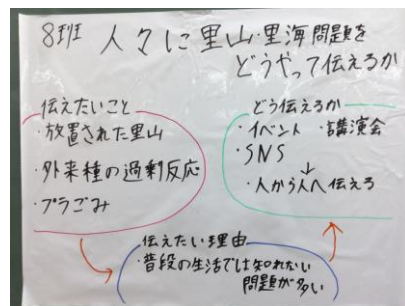 8班 人々に里山・里海問題を
どうやって伝えるか
伝えたいこと
・放置された里山
・外来種の過剰反応
・プラごみ
どう伝えるか
・イベント ・講演会
・SNS
↓
・人から人へ伝える
伝えたい理由
・普段の生活では知れない
問題が多い